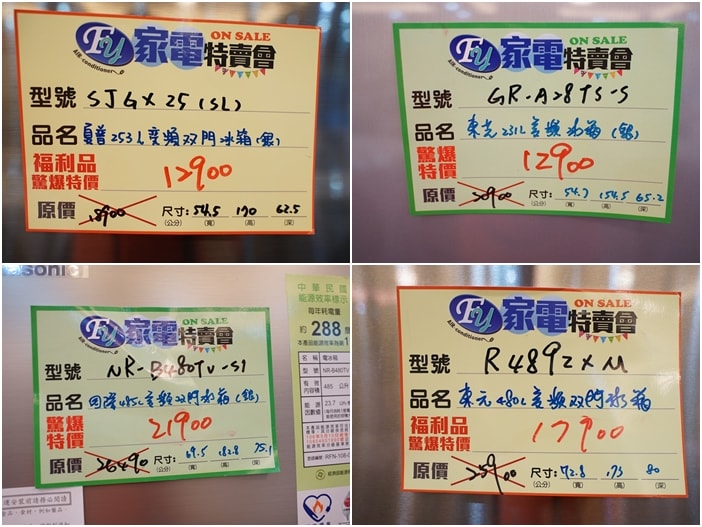 Fy 家電特賣會 ON SALE
AIR-conditioner
型號 SJGX25(SL)
品名 夏普253L変頻双門冰箱(銀)
福利品
驚爆特價 12900
原價 18900 尺寸: 54.5 170 62.5
(公分) (寬) (高) (深)
Fy 家電特賣會 ON SALE
AIR-conditioner
型號 GR-A28TS-S
品名 東元231L变頻冰箱(銀)
驚爆
特價 12900
原價 20900 尺寸: 54.7 154.5 65.2
(公分) (寬) (高) (深)
sonic
Fy 家電特賣會 ON SALE
AIR-conditioner
型號 NR-B480TV-S1
品名 国際485L变頻双門冰箱(銀)
驚爆
特價 21900
原價 26490 尺寸: 69.5 182.8 75.1
(公分) (寬) (高) (深)
中華民國
能源效率標示
每年耗電量
約 288
名稱 電冰箱
型號 NR-B480TV
485 公升
23.7
Fy 家電特賣會 ON SALE
AIR-conditioner
型號 R4892XM
品名 東元480L变頻双門冰箱
福利品
驚爆特價 17900
原價 25900 尺寸: 72.8 173 80
(公分) (寬) (高) (深)